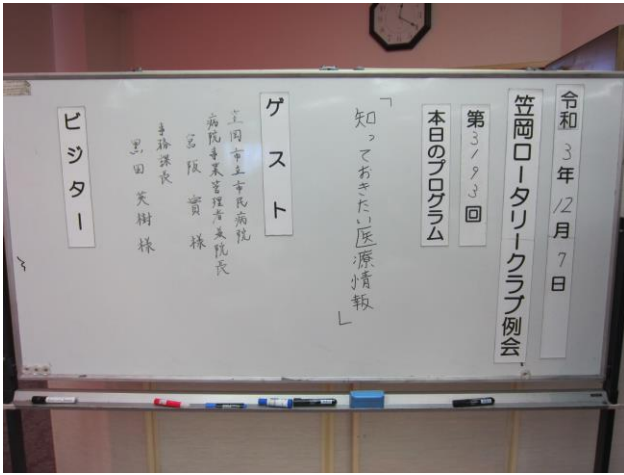 令和3年12月7日
笠岡ロータリークラブ例会
第3193回
本日のプログラム
「知っておきたい医療情報」
ゲスト
笠岡市立市民病院
病院事業管理者兼院長
宮阪實様
事務課長
黒田英樹様
ビジター